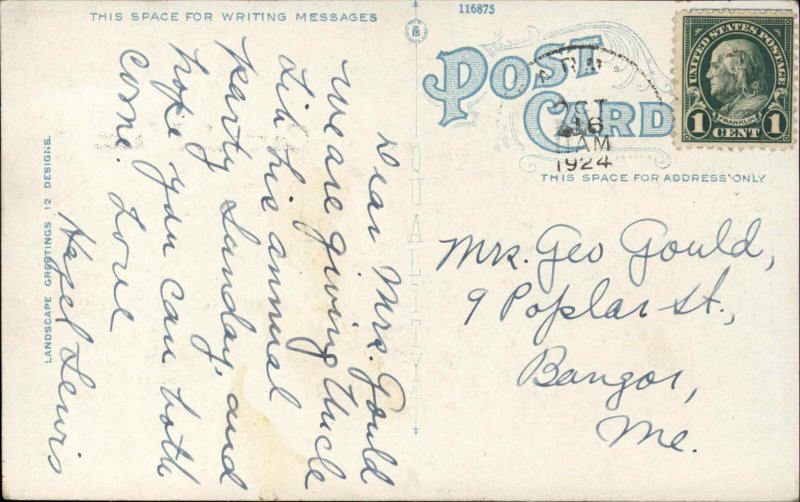 THIS SPACE FOR WRITING MESSAGES
116875
POST
CARD
OCT
16
AM
1924
UNITED STATES POSTAGE
FRANKLIN
1 CENT 1
THIS SPACE FOR ADDRESS ONLY
QUALITY
LANDSCAPE GREETINGS 12 DESIGNS.
Dear Mrs. Gould
We are giving Uncle
Lib his annual
party Sunday, and
hope you can both
come. Love
Hazel Lewis
Mrs. Geo Gould,
9 Poplar St.,
Bangor,
Me.